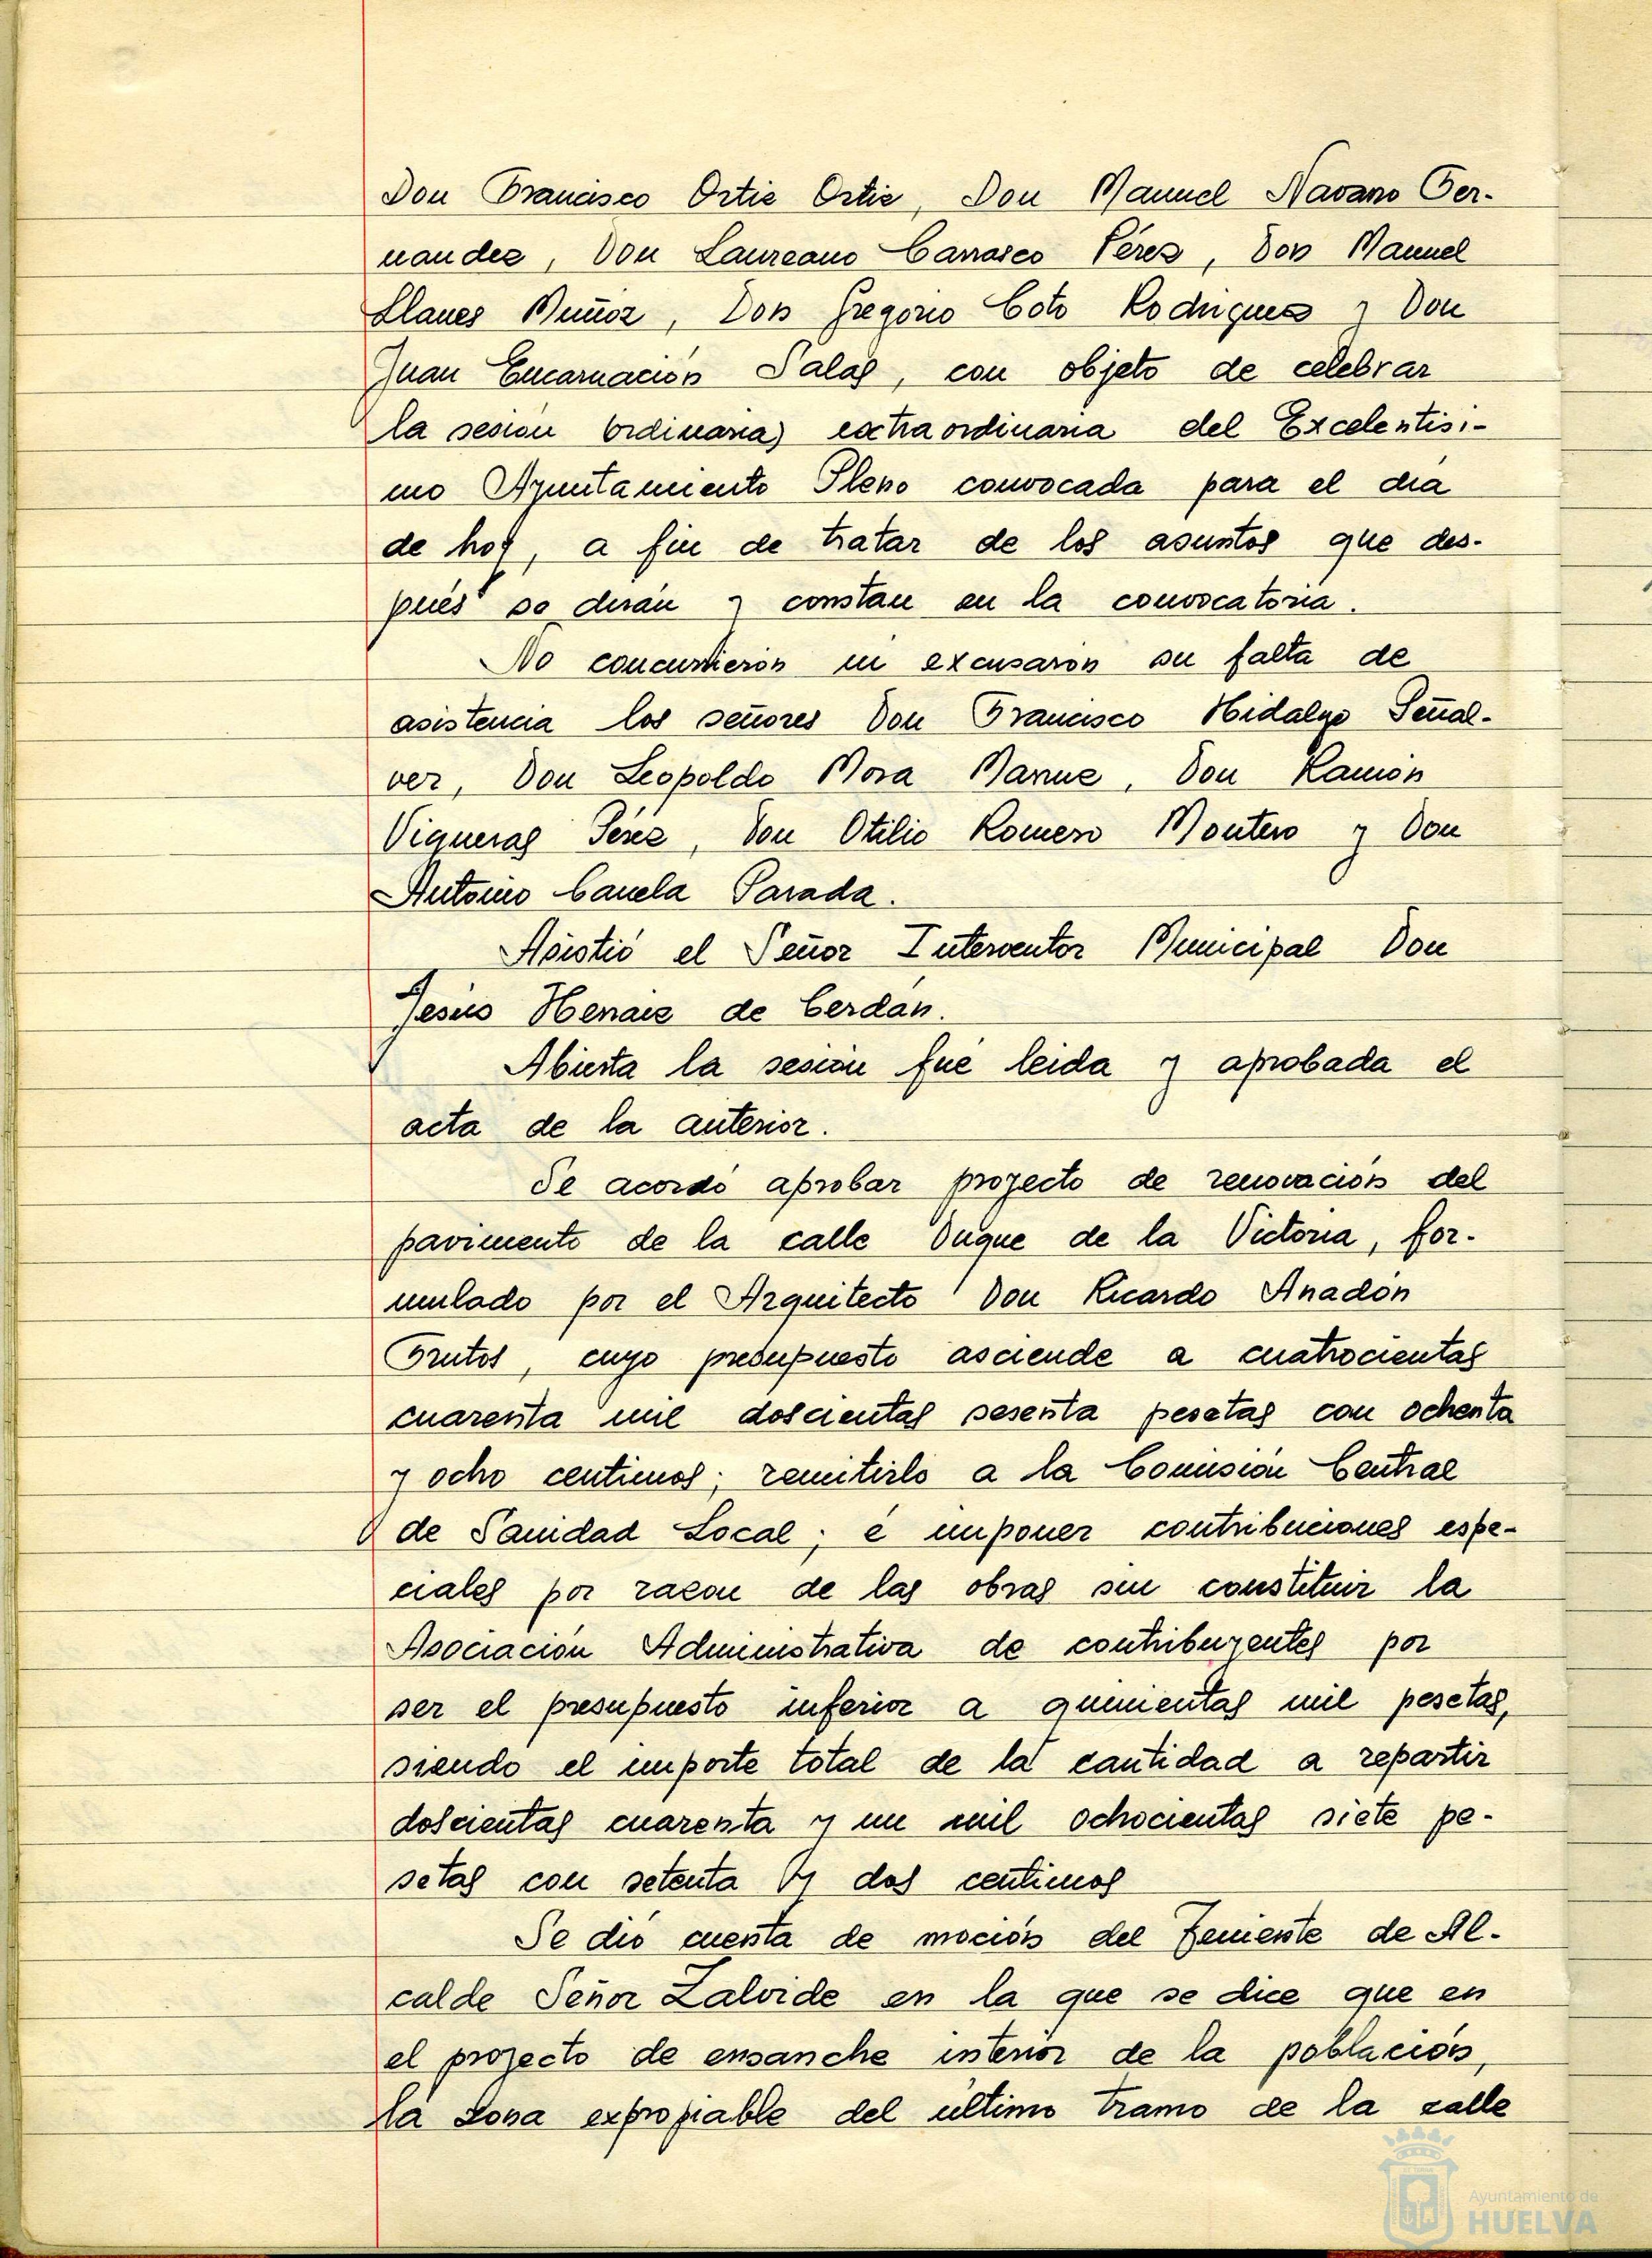 Don Francisco Ortiz Ortiz, Don Manuel Navarro Fer-
nandez, Don Laureano Carrasco Pérez, Don Manuel
Llanes Muñoz, Don Gregorio Coto Rodriguez y Don
Juan Encarnación Salas, con objeto de celebrar
la sesión (ordinaria) extraordinaria del Excelentísi-
mo Ayuntamiento Pleno convocada para el día
de hoy, a fin de tratar de los asuntos que des-
pués se dirán y constan en la convocatoria.
No concurrieron ni excusaron su falta de
asistencia los señores Don Francisco Hidalgo Peñal-
ver, Don Leopoldo Mora Don Ramón
Vigueras Pérez, Don Otilio Romero Montero y Don
Antonio Canela Parada.
Asistió el Señor Interventor Municipal Don
Jesús de Cerdán.
Abierta la sesión fué leida y aprobada el
acta de la anterior.
Se acordó aprobar proyecto de renovación del
pavimento de la calle Duque de la Victoria, for-
mulado por el Arquitecto Don Ricardo Anadón
Frutos, cuyo presupuesto asciende a cuatrocientas
cuarenta mil doscientas sesenta pesetas con ochenta
y ocho centimos; remitirlo a la Comisión Central
de Sanidad Local; é imponer contribuciones espe-
ciales por razon de las obras sin constituir la
Asociación Administrativa de contribuyentes por
ser el presupuesto inferior a quinientas mil pesetas,
siendo el importe total de la cantidad a repartir
doscientas cuarenta y un mil ochocientas siete pe-
setas con setenta y dos centimos
Se dió cuenta de moción del Teniente de Al-
calde Señor Zalvide en la que se dice que en
el proyecto de ensanche interior de la población,
la zona expropiable del último tramo de la calle
Ayuntamiento de
HUELVA